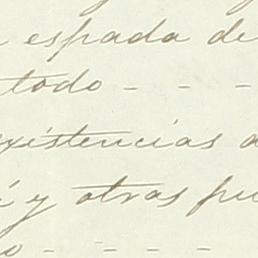 espada de
todo - - -
existencias
y otras